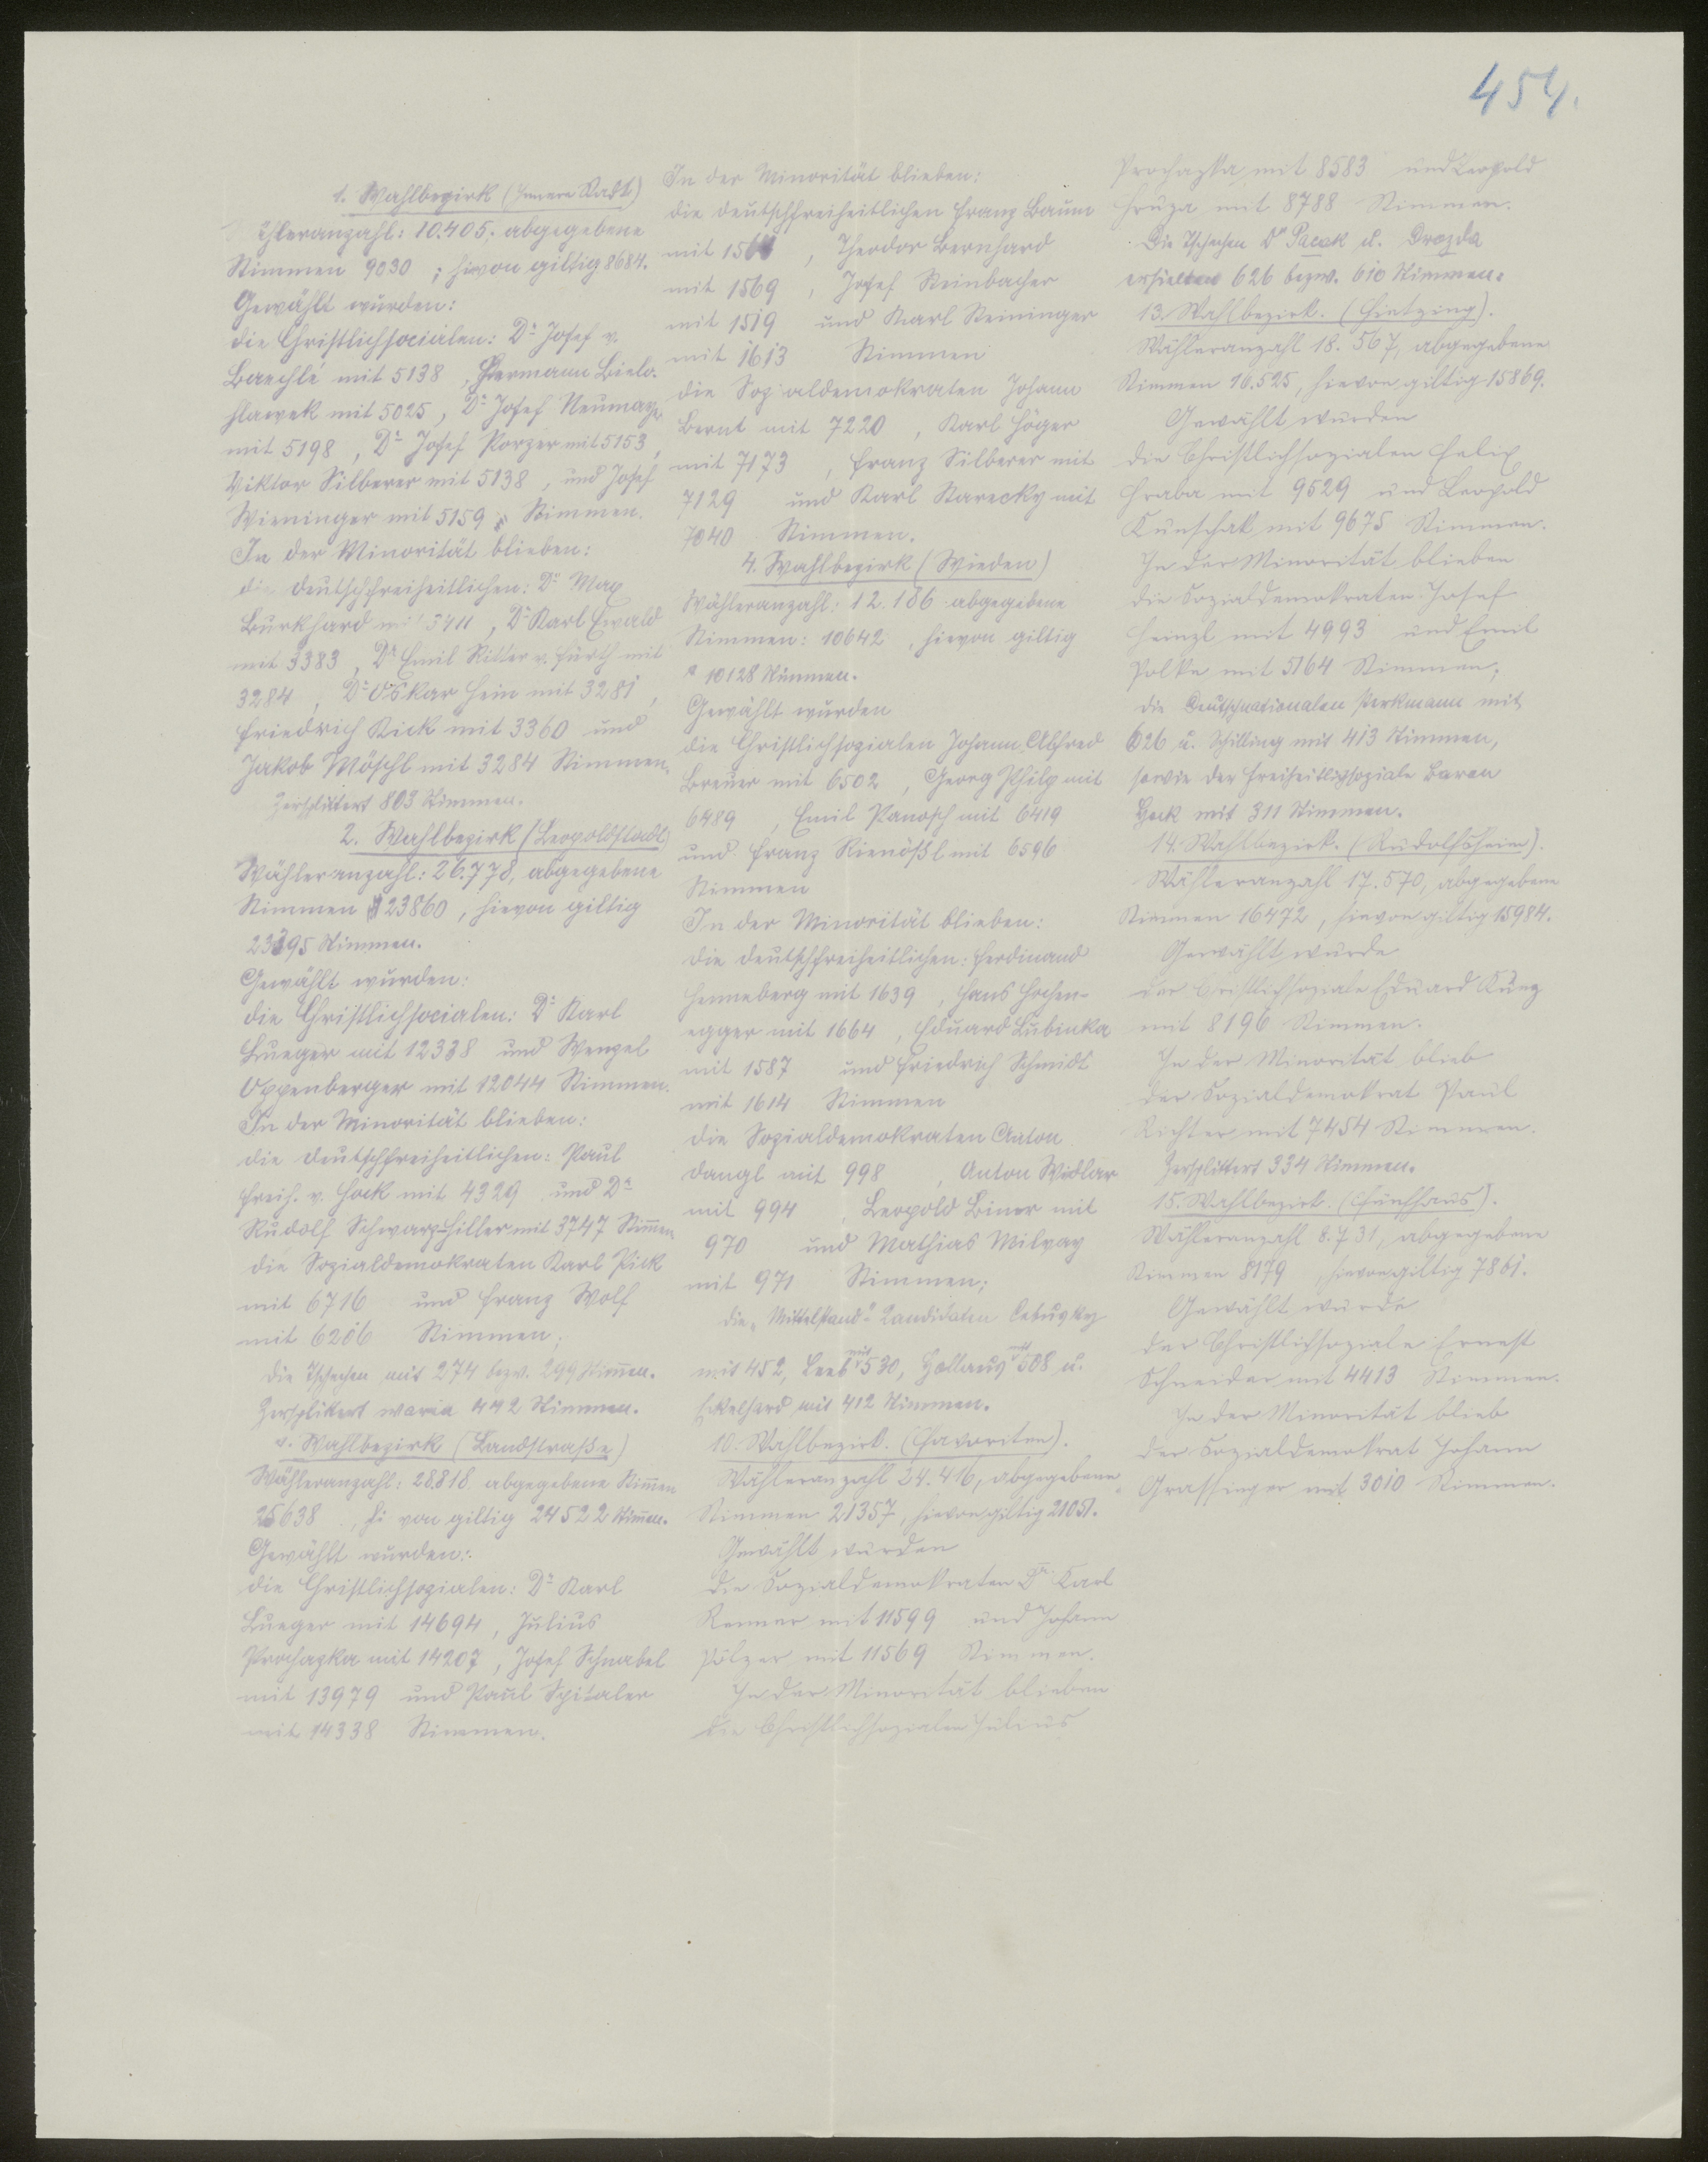 454.
1. Wahlbezirk (Innere Stadt)
ähleranzahl: 10.405; abgegebene
Stimmen 9030 ; hievon giltig 8684.
Gewählt wurden:
die Christlichsocialen: Dr Josef v.
Baechlé mit 5138 , Hermann Bielo-
hlawek mit 5025 , Dr Josef Neumayer
mit 5198 , Dr Josef Porzer mit 5153 ,
Viktor Silberer mit 5138 , und Josef
Wieninger mit 5159 Stimmen.
In der Minorität blieben:
die deutschfreiheitlichen: Dr Max
Burkhard mit 3411 , Dr Karl Ewald
mit 3383 , Dr Emil Ritter v. Fürth mit
3284 , Dr Oskar Hein mit 3281 ,
Friedrich Kick mit 3360 und
Jakob Möschl mit 3284 Stimmen.
Zersplittert 803 Stimmen.
2. Wahlbezirk (Leopoldstadt)
Wähleranzahl: 26.778, abgegebene
Stimmen 23860 , hievon giltig
23395 Stimmen.
Gewählt wurden:
die Christlichsocialen: Dr Karl
Lueger mit 12338 und Wenzel
Oppenberger mit 12044 Stimmen.
In der Minorität blieben:
die deutschfreiheitlichen: Paul
Freih. v. Hock mit 4329 und Dr
Rudolf Schwarz-Hiller mit 3747 Stimmen
die Sozialdemokraten Karl Pick
mit 6716 und Franz Wolf
mit 6206 Stimmen;
die Tschechen mit 274 bezw. 299 Stimmen.
Zersplittert waren 442 Stimmen.
Wahlbezirk (Landstraße)
Wähleranzahl: 28.818 abgegebene Stimmen
25638 , hievon giltig 24522 Stimmen.
Gewählt wurden:
die Christlichsozialen: Dr Karl
Lueger mit 14694 , Julius
Prochazka mit 14207 , Josef Schnabel
mit 13979 und Paul Spitaler
mit 14338 Stimmen.
In der Minorität blieben:
die deutschfreiheitlichen Franz Baum
mit , Theodor Bernhard
mit 1569 , Josef Steinbacher
mit 1519 und Karl Steininger
mit 1613 Stimmen
die Sozialdemokraten Johann
Bernt mit 7220 , Karl Höger
mit 7173 , Franz Silberer mit
7129 und Karl Starecky mit
7040 Stimmen.
4. Wahlbezirk (Wieden)
Wähleranzahl: 12.186 abgegebene
Stimmen: 10642 , hievon giltig
10128 Stimmen.
Gewählt wurden
die Christlichsozialen Johann Alfred
Breuer mit 6502 , Georg Philp mit
6489 , Emil Panosch mit 6419
und Franz Rienößl mit 6596
Stimmen
In der Minorität blieben:
die deutschfreiheitlichen: Ferdinand
Henneberg mit 1639 , Hans Hochen-
egger mit 1664 , Eduard Lubinka
mit 1587 und Friedrich Schmidt
mit 1614 Stimmen
die Sozialdemokraten Anton
Dangl mit 998 , Anton Widlar
mit 994 , Leopold Biner mit
970 und Mathias Milvay
mit 971 Stimmen;
die „Mittelstand"-Kandidaten
mit 452, mit 530, mit 508 u.
mit 412 Stimmen.
10. Wahlbezirk. (Favoriten).
Wähleranzahl 24.416, abgegebene
Stimmen 21357, hievon giltig 21051.
Gewählt wurden
die Sozialdemokraten Dr Karl
Renner mit 11599 und Johann
Pölzer mit 11569 Stimmen.
In der Minorität blieben
die Christlichsozialen Julius
Prochazka mit 8583 und Leopold
Hruza mit 8788 Stimmen.
Die Tschechen Dr Pacak u. Drozda
erhielten 626 bezw. 610 Stimmen.
13. Wahlbezirk. (Hietzing).
Wähleranzahl 18.567, abgegebene
Stimmen 16.525, hievon giltig 15869.
Gewählt wurden
die Christlichsozialen Felix
Hraba mit 9529 und Leopold
Kunschak mit 9675 Stimmen.
In der Minorität blieben
die Sozialdemokraten Josef
Heinzl mit 4993 und Emil
Polke mit 5164 Stimmen;
die Deutschnationalen Perkmann mit
626 u. Schilling mit 413 Stimmen,
sowie der Freiheitlichsoziale Baron
Hock mit 311 Stimmen.
14. Wahlbezirk. (Rudolfsheim).
Wähleranzahl 17.570, abgegebene
Stimmen 16472 , hievon giltig 15984.
Gewählt wurde
der Cristlichsoziale Eduard Kunz
mit 8196 Stimmen.
In der Minorität blieb
der Sozialdemokrat Paul
Richter mit 7454 Stimmen.
Zersplittert 334 Stimmen.
15. Wahlbezirk. (Fünfhaus).
Wähleranzahl 8.731, abgegebene
Stimmen 8179 , hievon giltig 7861.
Gewählt wurde
der Christlichsoziale Ernest
Schneider mit 4413 Stimmen.
In der Minorität blieb
der Sozialdemokrat Johann
Grassinger mit 3010 Stimmen.